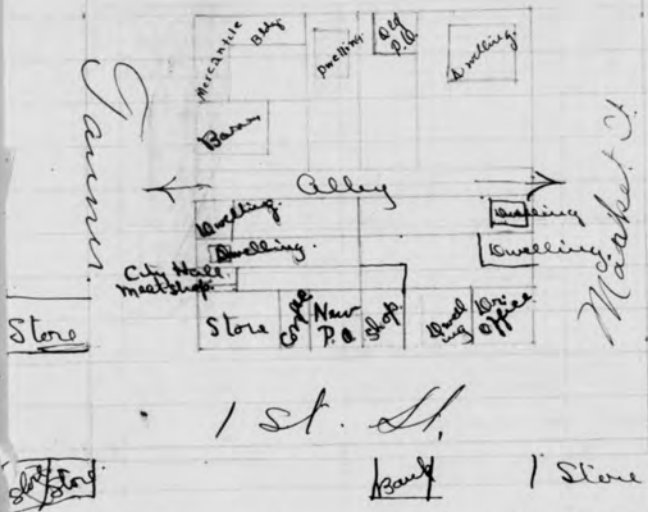 Mercantile Bldg
Dwelling
Old P.O.
Dwelling.
Barn
Market St
Alley
Dwelling.
Dwelling
Dwelling.
Dwelling
City Hall
Meat shop
Store
Store
New P.O
Shop
Dwelling
Dr. Office
1 St. St.
Store
Store
Bank
Store